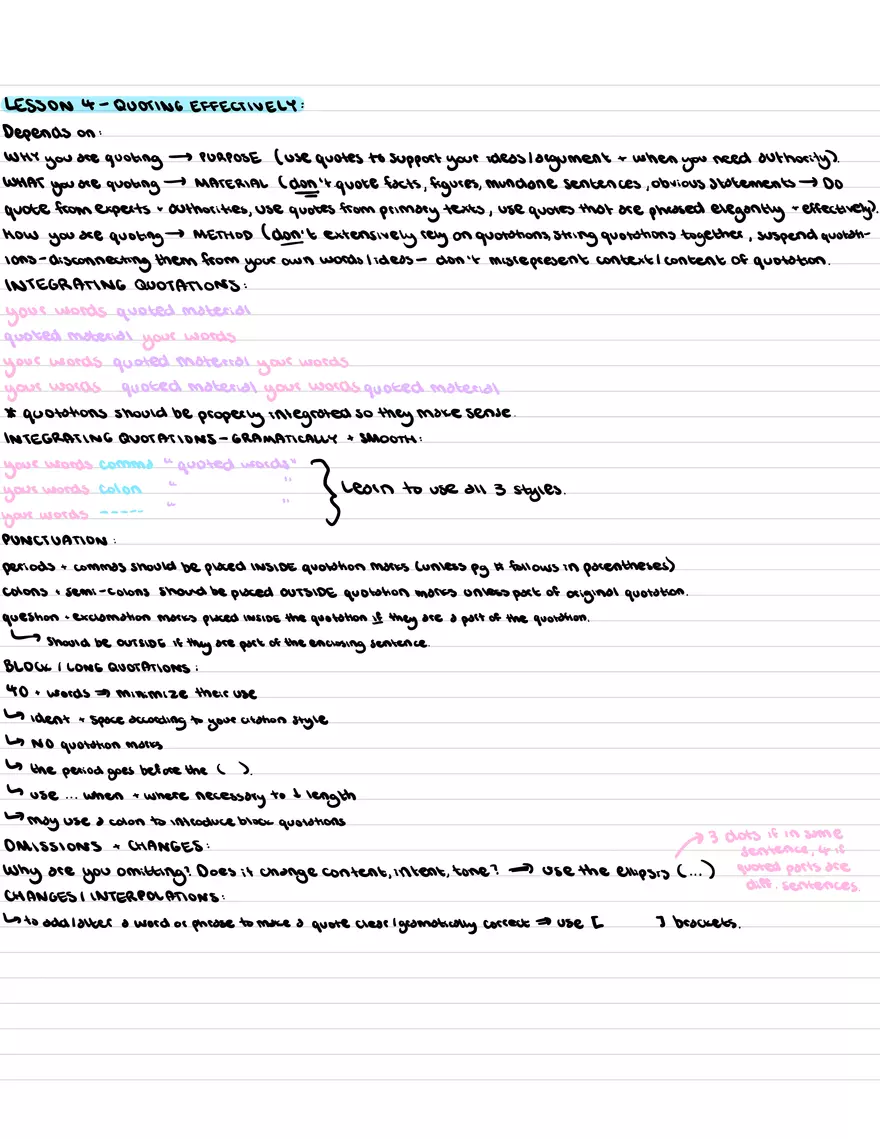 LESSON 4 - QUOTING EFFECTIVELY:
Depends on:
WHY you are quoting → PURPOSE (use quotes to support your ideas/argument + when you need authority).
WHAT you are quoting → MATERIAL (don't quote facts, figures, mundane sentences, obvious statements → Do
quote from experts + authorities, use quotes from primary texts, use quotes that are phrased elegantly + effectively).
HOW you are quoting → METHOD (don't extensively rely on quotations, string quotations together, suspend quotati-
ions - disconnecting them from your own words/ideas - don't misrepresent context/content of quotation.
INTEGRATING QUOTATIONS:
your words quoted material
quoted material your words
your words quoted material your words
your words quoted material your words quoted material
* quotations should be properly integrated so they make sense.
INTEGRATING QUOTATIONS - GRAMATICALLY + SMOOTH:
your words comma "quoted words"
your words colon " "
your words ----- " "
} Learn to use all 3 styles.
PUNCTUATION:
periods + commas should be placed INSIDE quotation marks (unless pg # follows in parentheses)
colons + semi-colons should be placed OUTSIDE quotation marks unless part of original quotation.
question + exclamation marks placed INSIDE the quotation if they are a part of the quotation.
↳ Should be OUTSIDE if they are part of the enclosing sentence.
BLOCK / LONG QUOTATIONS:
40 + words ⇒ minimize their use
↳ ident + space according to your citation style
↳ NO quotation marks
↳ the period goes before the ( ).
↳ use ... when + where necessary to ↓ length
↳ may use a colon to introduce block quotations
OMISSIONS + CHANGES:
Why are you omitting? Does it change content, intent, tone? → use the ellipsis (...)
→ 3 dots if in same
sentence, 4 if
quoted parts are
diff. sentences.
CHANGES / INTERPOLATIONS:
↳ to add/alter a word or phrase to make a quote clear/gramatically correct ⇒ use [ ] brackets.